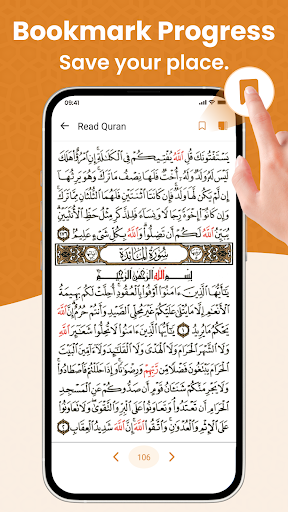 Bookmark Progress
Save your place.
09:41
Read Quran
يَسْتَفْتُونَكَ قُلِ ٱللَّهُ يُفْتِيكُمْ فِي ٱلْكَلَٰلَةِ إِنِ ٱمْرُؤٌاْ هَلَكَ
لَيْسَ لَهُۥ وَلَدٌ وَلَهُۥٓ أُخْتٌ فَلَهَا نِصْفُ مَا تَرَكَ وَهُوَ يَرِثُهَآ
إِن لَّمْ يَكُن لَّهَا وَلَدٌ فَإِن كَانَتَا ٱثْنَتَيْنِ فَلَهُمَا ٱلثُّلُثَانِ مِمَّا تَرَكَ
وَإِن كَانُوٓاْ إِخْوَةً رِّجَالًا وَنِسَآءً فَلِلذَّكَرِ مِثْلُ حَظِّ ٱلْأُنثَيَيْنِ
يُبَيِّنُ ٱللَّهُ لَكُمْ أَن تَضِلُّواْ وَٱللَّهُ بِكُلِّ شَيْءٍ عَلِيمٌ ١٧٦
سُورَةُ المَائِدَةِ
بِسْمِ ٱللَّهِ ٱلرَّحْمَٰنِ ٱلرَّحِيمِ
يَٰٓأَيُّهَا ٱلَّذِينَ ءَامَنُوٓاْ أَوْفُواْ بِٱلْعُقُودِ أُحِلَّتْ لَكُم بَهِيمَةُ
ٱلْأَنْعَٰمِ إِلَّا مَا يُتْلَىٰ عَلَيْكُمْ غَيْرَ مُحِلِّي ٱلصَّيْدِ وَأَنتُمْ حُرُمٌ إِنَّ ٱللَّهَ
يَحْكُمُ مَا يُرِيدُ ١ يَٰٓأَيُّهَا ٱلَّذِينَ ءَامَنُواْ لَا تُحِلُّواْ شَعَٰٓئِرَ ٱللَّهِ
وَلَا ٱلشَّهْرَ ٱلْحَرَامَ وَلَا ٱلْهَدْيَ وَلَا ٱلْقَلَٰٓئِدَ وَلَآ ءَآمِّينَ ٱلْبَيْتَ
ٱلْحَرَامَ يَبْتَغُونَ فَضْلًا مِّن رَّبِّهِمْ وَرِضْوَٰنًا وَإِذَا حَلَلْتُمْ فَٱصْطَادُواْ
وَلَا يَجْرِمَنَّكُمْ شَنَـَٔانُ قَوْمٍ أَن صَدُّوكُمْ عَنِ ٱلْمَسْجِدِ
ٱلْحَرَامِ أَن تَعْتَدُواْ وَتَعَاوَنُواْ عَلَى ٱلْبِرِّ وَٱلتَّقْوَىٰ وَلَا تَعَاوَنُواْ
عَلَى ٱلْإِثْمِ وَٱلْعُدْوَٰنِ وَٱتَّقُواْ ٱللَّهَ إِنَّ ٱللَّهَ شَدِيدُ ٱلْعِقَابِ ٢
106